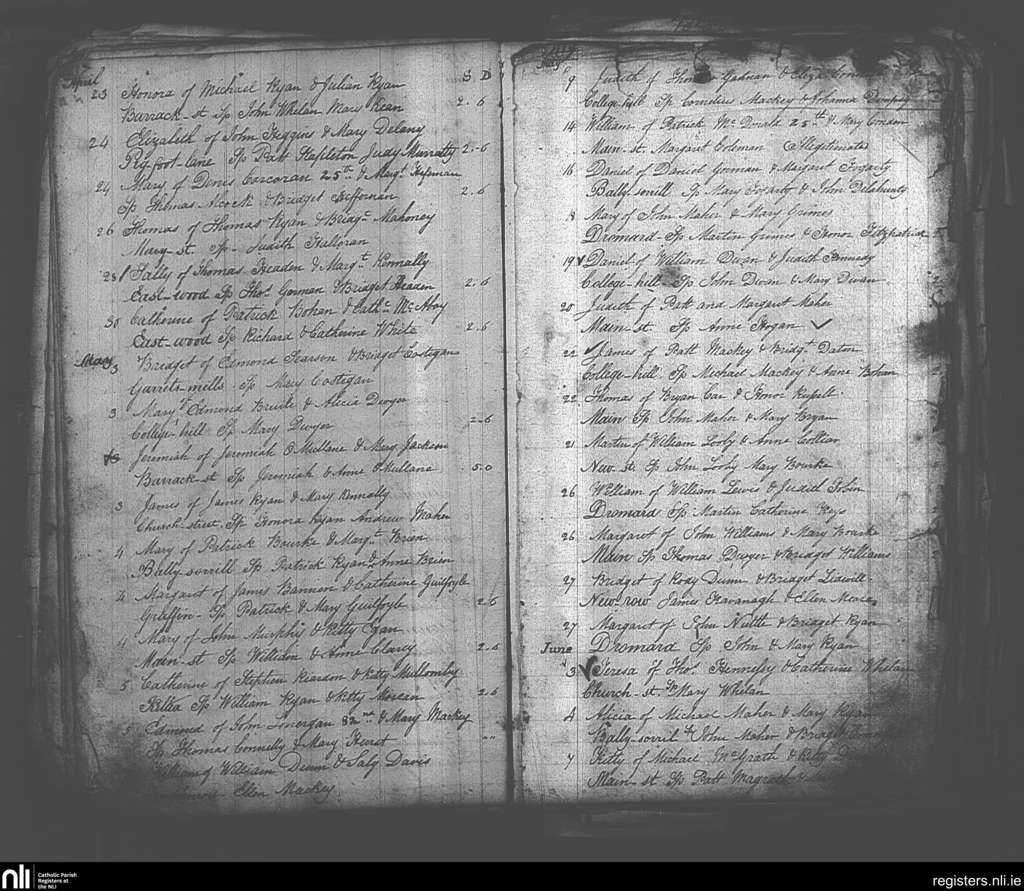 April
S D
23 Honora of Michael Ryan & Julian Ryan
Barrack-st Sp John Whelan Mary Kean 2-6
24 Elizabeth of John Higgins & Mary Delany
Pig foot lane Sp Patt Stapleton Judy Murratty 2-6
24 Mary of Denis Corcoran 25th & Margt Heffernan
Sp Thomas Alcock & Bridget Heffernan 2.6
26 Thomas of Thomas Ryan & Bridgt Mahoney
Main-st. Sp- Judith Halloran
28 Sally of Thomas Headen & Margt Kennally
East-wood Sp Thos Gorman & Bridget Headen 2.6
30 Catherine of Patrick Bohan & Cathe McAboy
East-wood Sp Richard & Catherine White 2.6
May 3 Bridget of Edmond Pearson & Bridget Costigan
Garrets-mills Sp Mary Costigan
3 Mary of Edmond & Alicia Dwyer
College-hill Sp Mary Dwyer 2-6
Jeremiah of Jeremiah O Mullane & Mary Jackson
Barrack-st Sp Jeremiah & Anne O Mullane 5.0
3 James of James Ryan & Mary Kennally
Church-street Sp Honora Ryan Andrew Maher
4 Mary of Patrick Bourke & Margt Brien
Bally-sorrill Sp Patrick Ryan & Anne Brien
4 Margaret of James Bannon & Catherine Guilfoyle
Graffin- Sp Patrick & Mary Guilfoyle 2.6
4 Mary of John Murphy & Kitty Egan
Main-st Sp William & Anne Clancy 2.6
5 Catherine of Stephen Reardon & Kitty Mullomby
Killea Sp William Ryan & Kitty 2.6
5 Edmond of John Lonergan 82nd & Mary Mackey
Sp Thomas Connelly & Mary Hurst
William of William Dunn & Saly Davis
Ellen Mackey
May
9 Judith of Thomas &
College-hill Sp Cornelius Mackey & Johanna Dempsey
14 William of Patrick McDonale 25th & Mary Condon
Main-st. Margaret Coleman Illegitimate
16 Daniel of Daniel Gorman & Margaret Fogarty
Bally-sorrill Sp Mary Fogarty & John Delahunty
18 Mary of John Maher & Mary Grimes
Dromard Sp Martin Grimes & Honor Fitzpatrick
19 Daniel of William Dwan & Judith Kennedy
College-hill Sp John Dwan & Mary Dwan
20 Judith of Patt and Margaret Maher
Main-st Sp Anne Hogan
22 James of Patt Mackey & Bridgt Dalton
College-hill Sp Michael Mackey & Anne Bohan
22 Thomas of Bryan Car & Honor Russell
Main Sp John Maher & Mary Bryan
21 Martin of William Looby & Anne Collier
New-st Sp John Looby Mary Bourke
26 William of William Lewis & Judith Tobin
Dromard Sp Martin Catherine Keys
26 Margaret of John Williams & Mary Bourke
Main Sp Thomas Dwyer & Bridget Williams
27 Bridget of Rody Dunn & Bridget Lidwill
New-row James Kavanagh & Ellen Meara
27 Margaret of John Nuttle & Bridget Ryan
Dromard Sp John & Mary Ryan
June
3 Teresa of Thos Hennessy & Catherine Whelan
Church-st Sp Mary Whelan
4 Alicia of Michael Maher & Mary Ryan
Bally-sorril Sp John Maher & Bridget
7 Kitty of Michael McGrath & Kitty
Main-st Sp Patt Magrath &
nli
Catholic Parish
Registers at
the NLI
registers.nli.ie